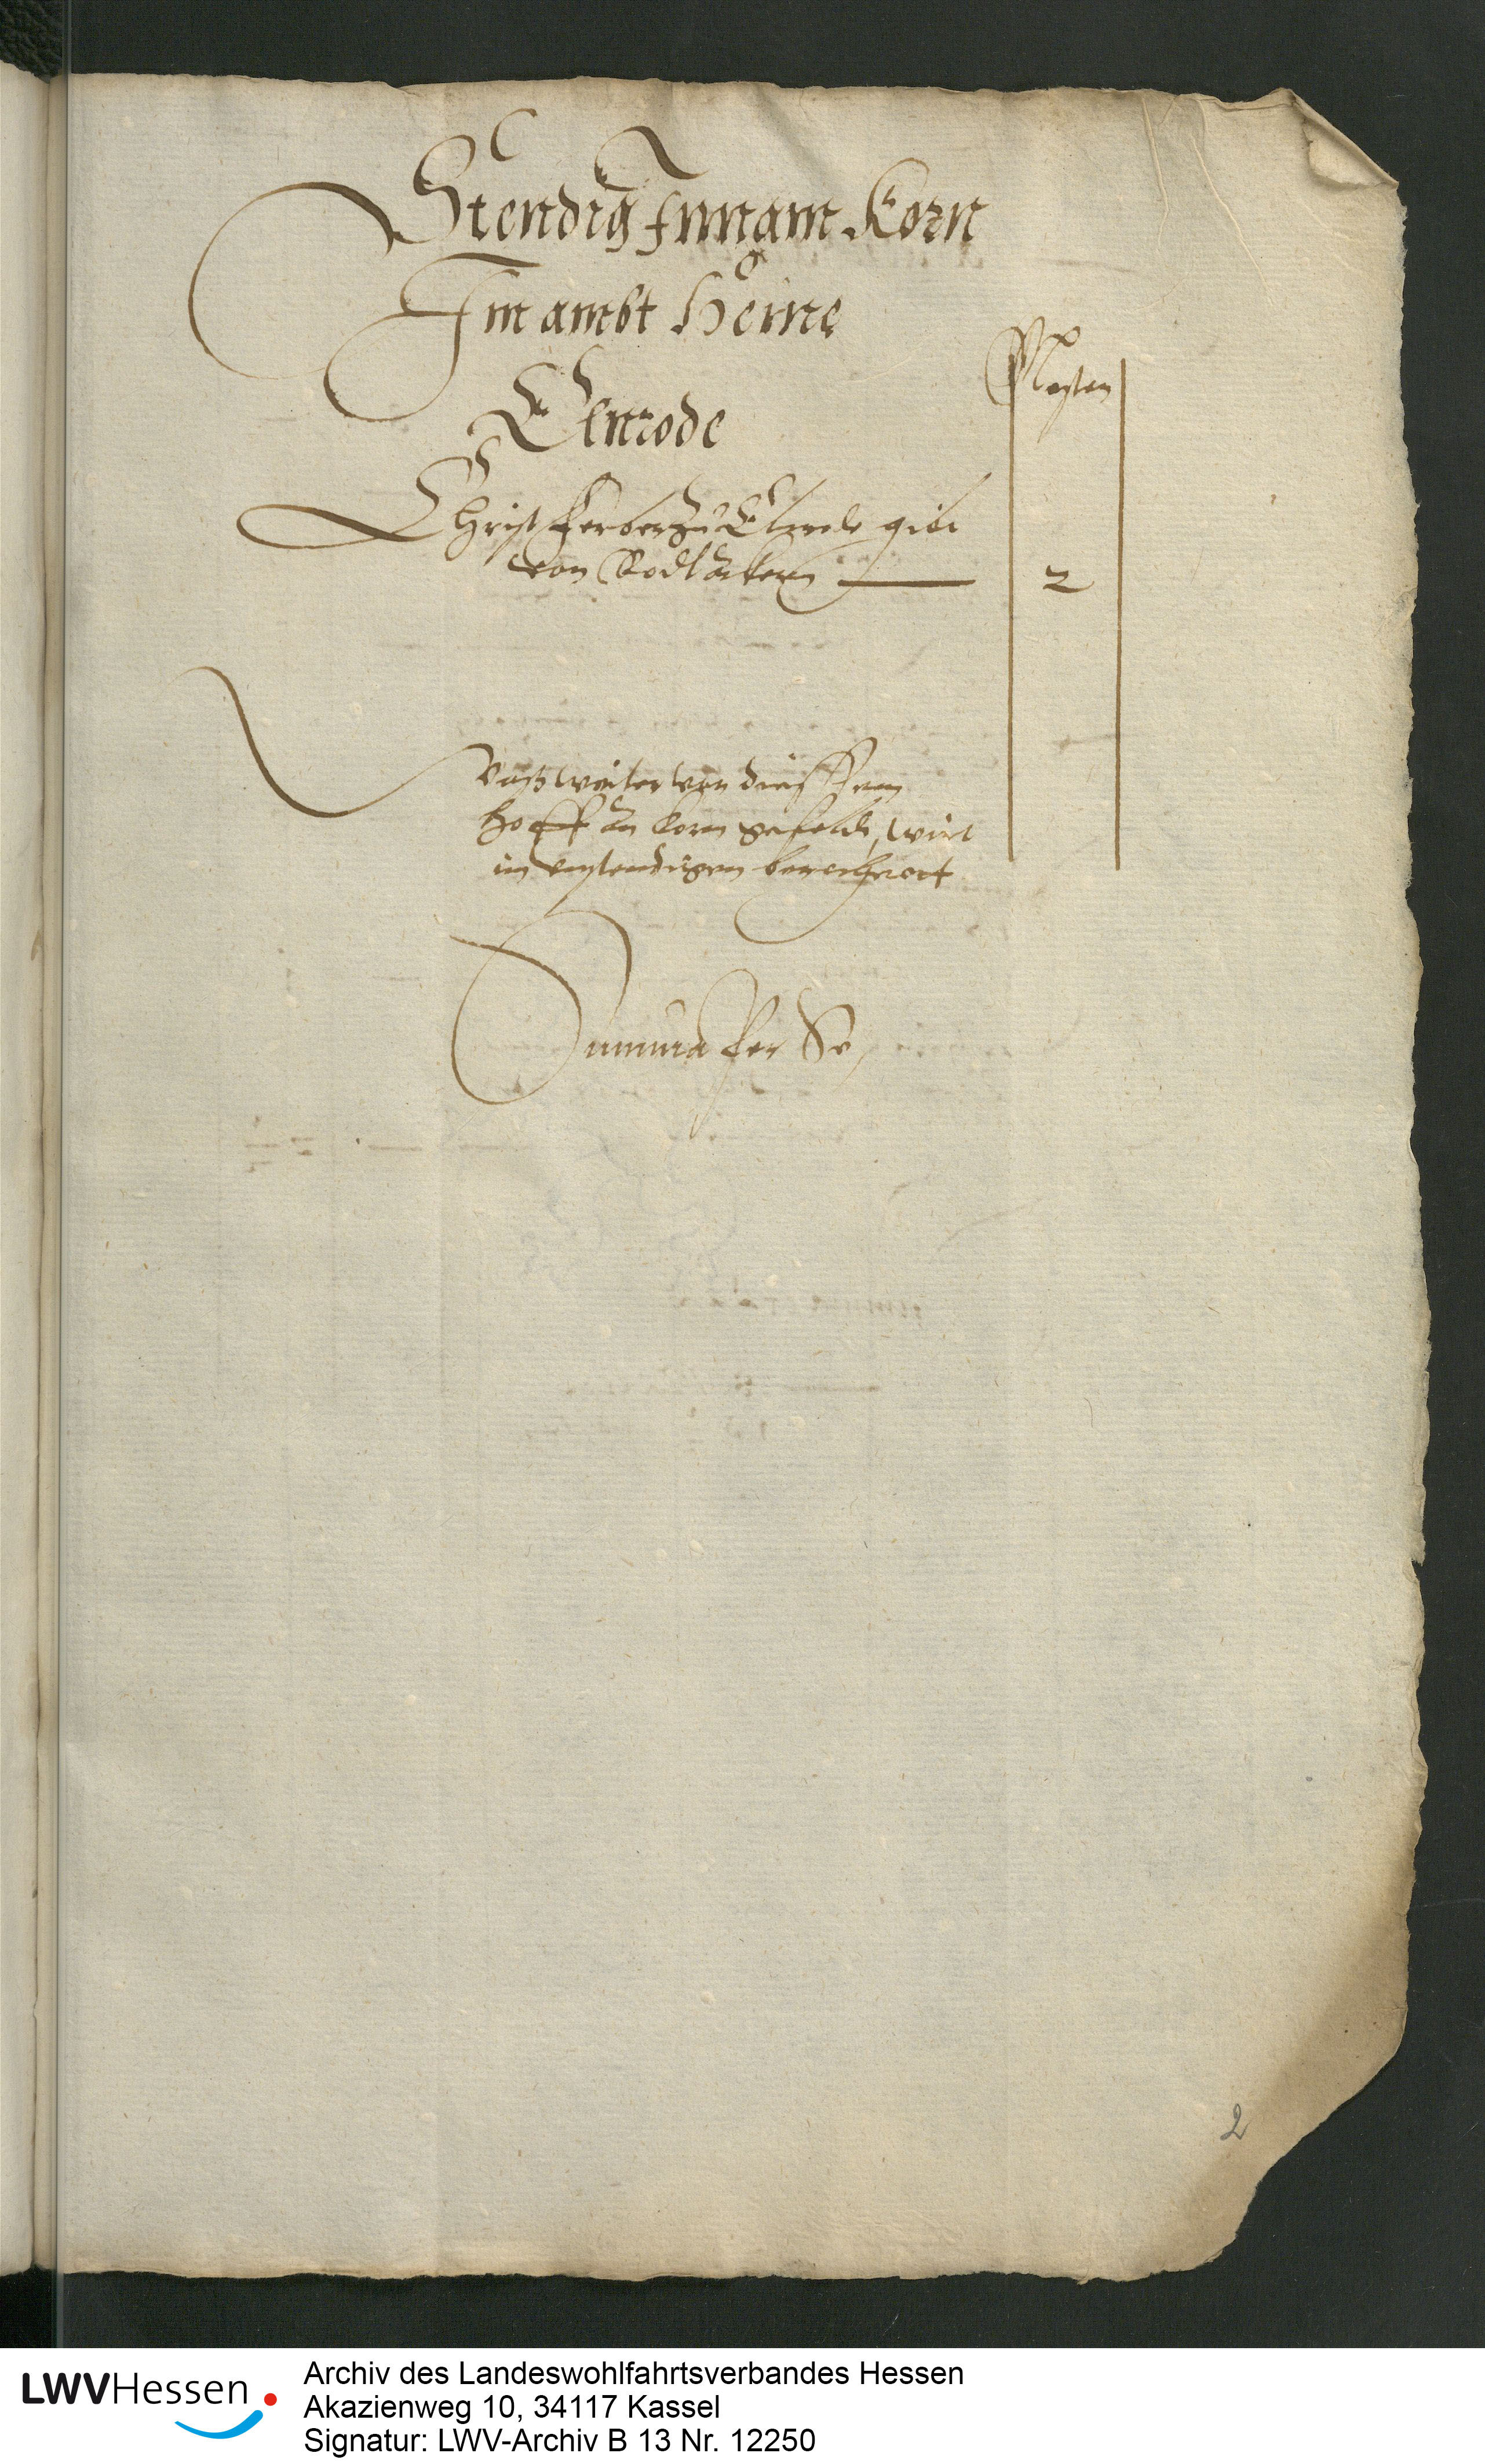 Stendig Innam Korn
Im ambt Heine
Mesten
Elnrode
Christ Ferber zu Elnrode gibt
von Rodl äckern 2
Waß weiter von diesem
Hoff an korn gefelt, wirt
im unstendigen berechnet
Summa Per Se
2
LWVHessen
Archiv des Landeswohlfahrtsverbandes Hessen
Akazienweg 10, 34117 Kassel
Signatur: LWV-Archiv B 13 Nr. 12250